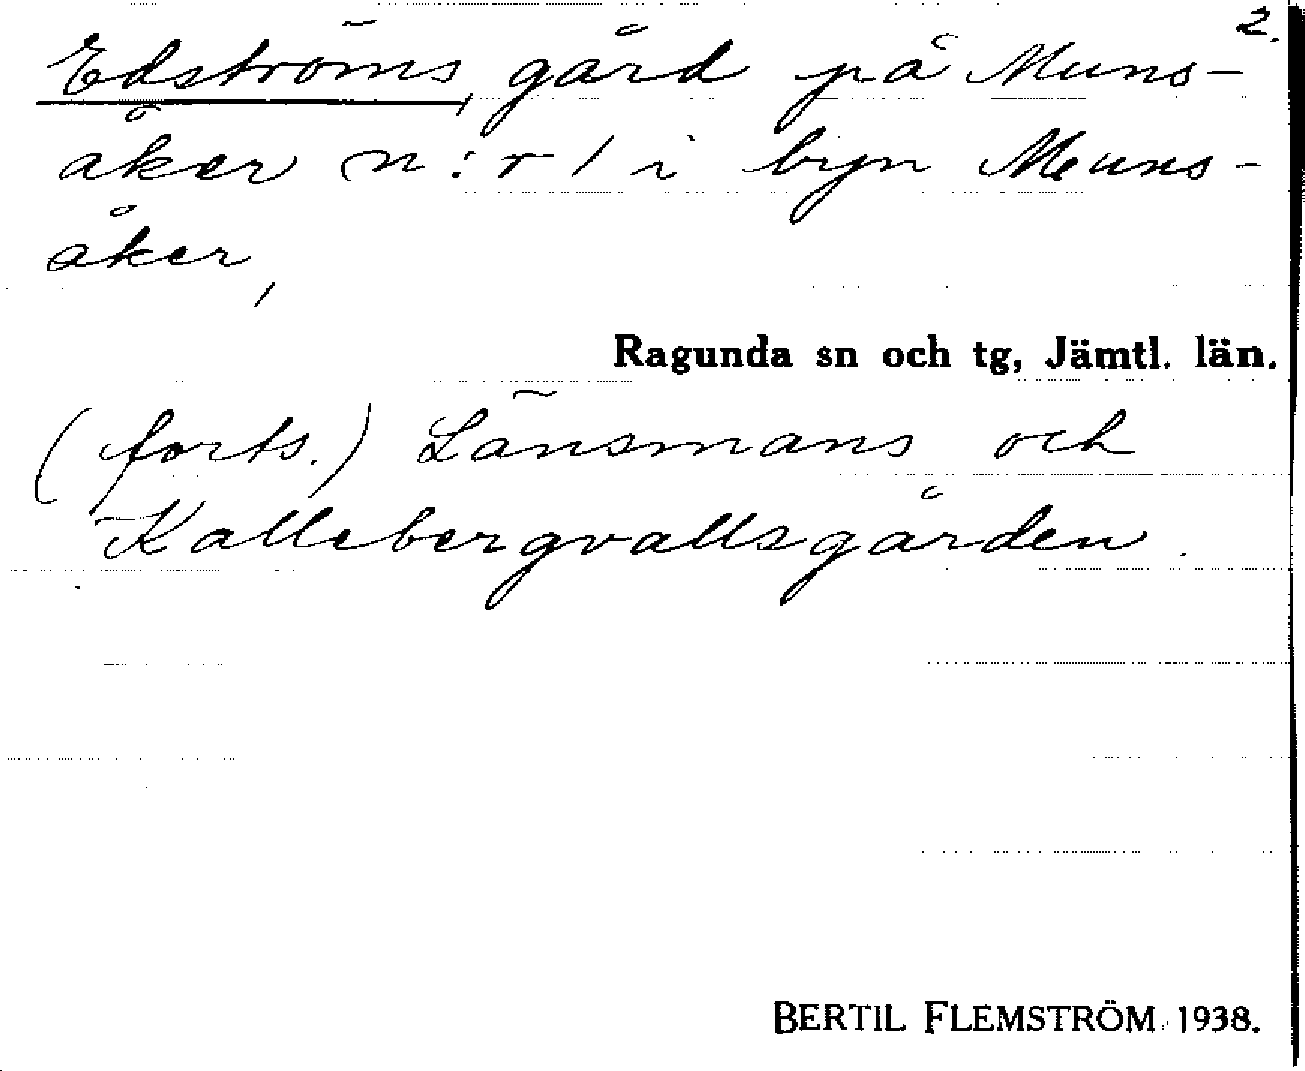 2.
Edströms, gård på Muns-
åker n:r 1 i byn Muns-
åker,
Ragunda sn och tg, Jämtl. län.
(forts.) Länsmans och
Kallebergvallsgården.
BERTIL FLEMSTRÖM 1938.